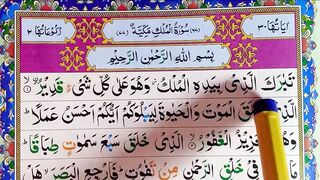 اٰيَاتُهَا ٣٠ (٦٧) سُوْرَةُ الْمُلْكِ مَكِّيَّةٌ (٧٧) رُكُوْعَاتُهَا ٢
بِسْمِ اللّٰهِ الرَّحْمٰنِ الرَّحِيْمِ
تَبٰرَكَ الَّذِىْ بِيَدِهِ الْمُلْكُ وَهُوَ عَلٰى كُلِّ شَىْءٍ قَدِيْرٌ ۙ ١
الْمَوْتَ وَالْحَيٰوةَ لِيَبْلُوَكُمْ اَيُّكُمْ اَحْسَنُ عَمَلًا ؕ
الْغَفُوْرُ ۙ ٢ الَّذِىْ خَلَقَ سَبْعَ سَمٰوٰتٍ طِبَاقًا ؕ
فِىْ خَلْقِ الرَّحْمٰنِ مِنْ تَفٰوُتٍ ؕ فَارْجِعِ الْبَصَرَ ۙ هَلْ